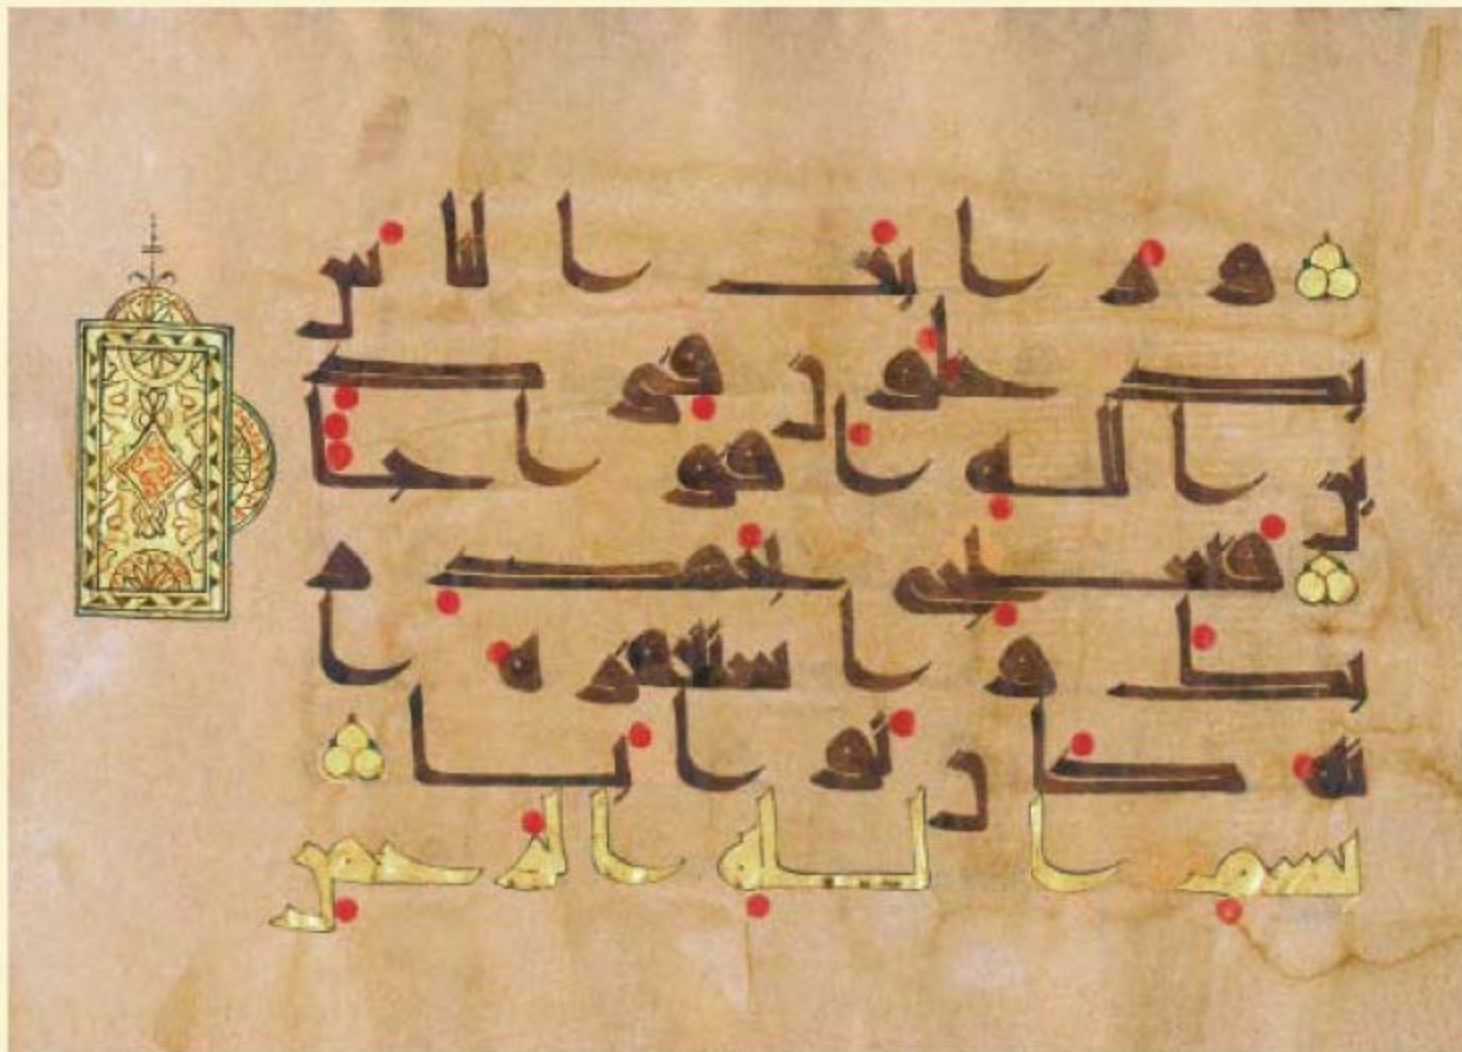 ورايت الناس
يدخلون في د
ين الله افواجا
فسبح بحمد ر
بك واستغفره ا
نه كان توابا
بسم الله الرحمن